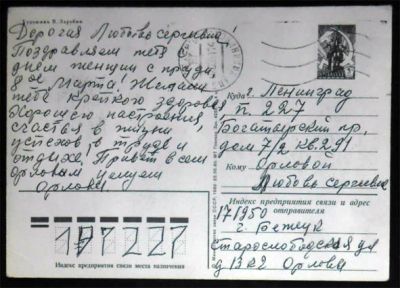 Художник В. Зарубин
Дорогая Любовь Сергеевна
Поздравляем тебя
днем женщин с праздн
8ое Марта! Желаем
тебе крепкого здоровья
Хорошего настроения,
счастья в жизни
успехов в труде и
отдыхе. Привет всем
орловым целуем
Орловы
Куда г. Ленинград
п. 227
Богатырский пр.
дом 7/2 кв. 291
Кому Орловой
Любовь Сергеевне
Индекс предприятия связи и адрес
отправителя
171950
г. Бежецк
Старослободская ул
д 13 к 2 Орловы
197227
Индекс предприятия связи места назначения